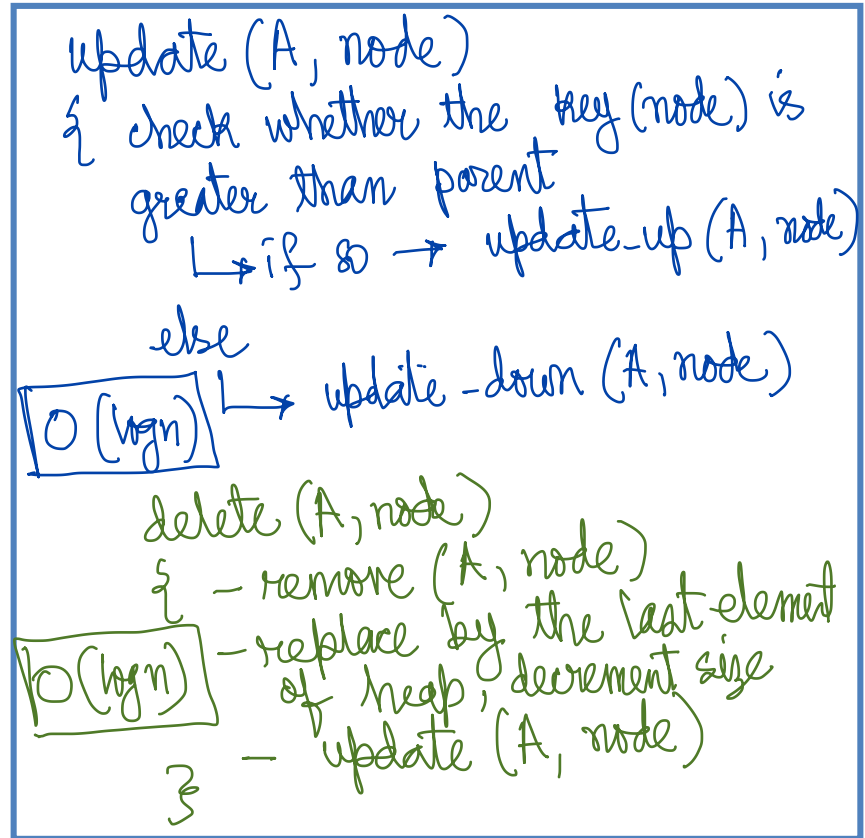 update (A, node)
{ check whether the key (node) is
greater than parent
↳ if so → update-up (A, node)
else
↳ update-down (A, node)
O (logn)
delete (A, node)
{ - remove (A, node)
- replace by the last element
O (logn)
of heap, decrement size
- update (A, node)
}